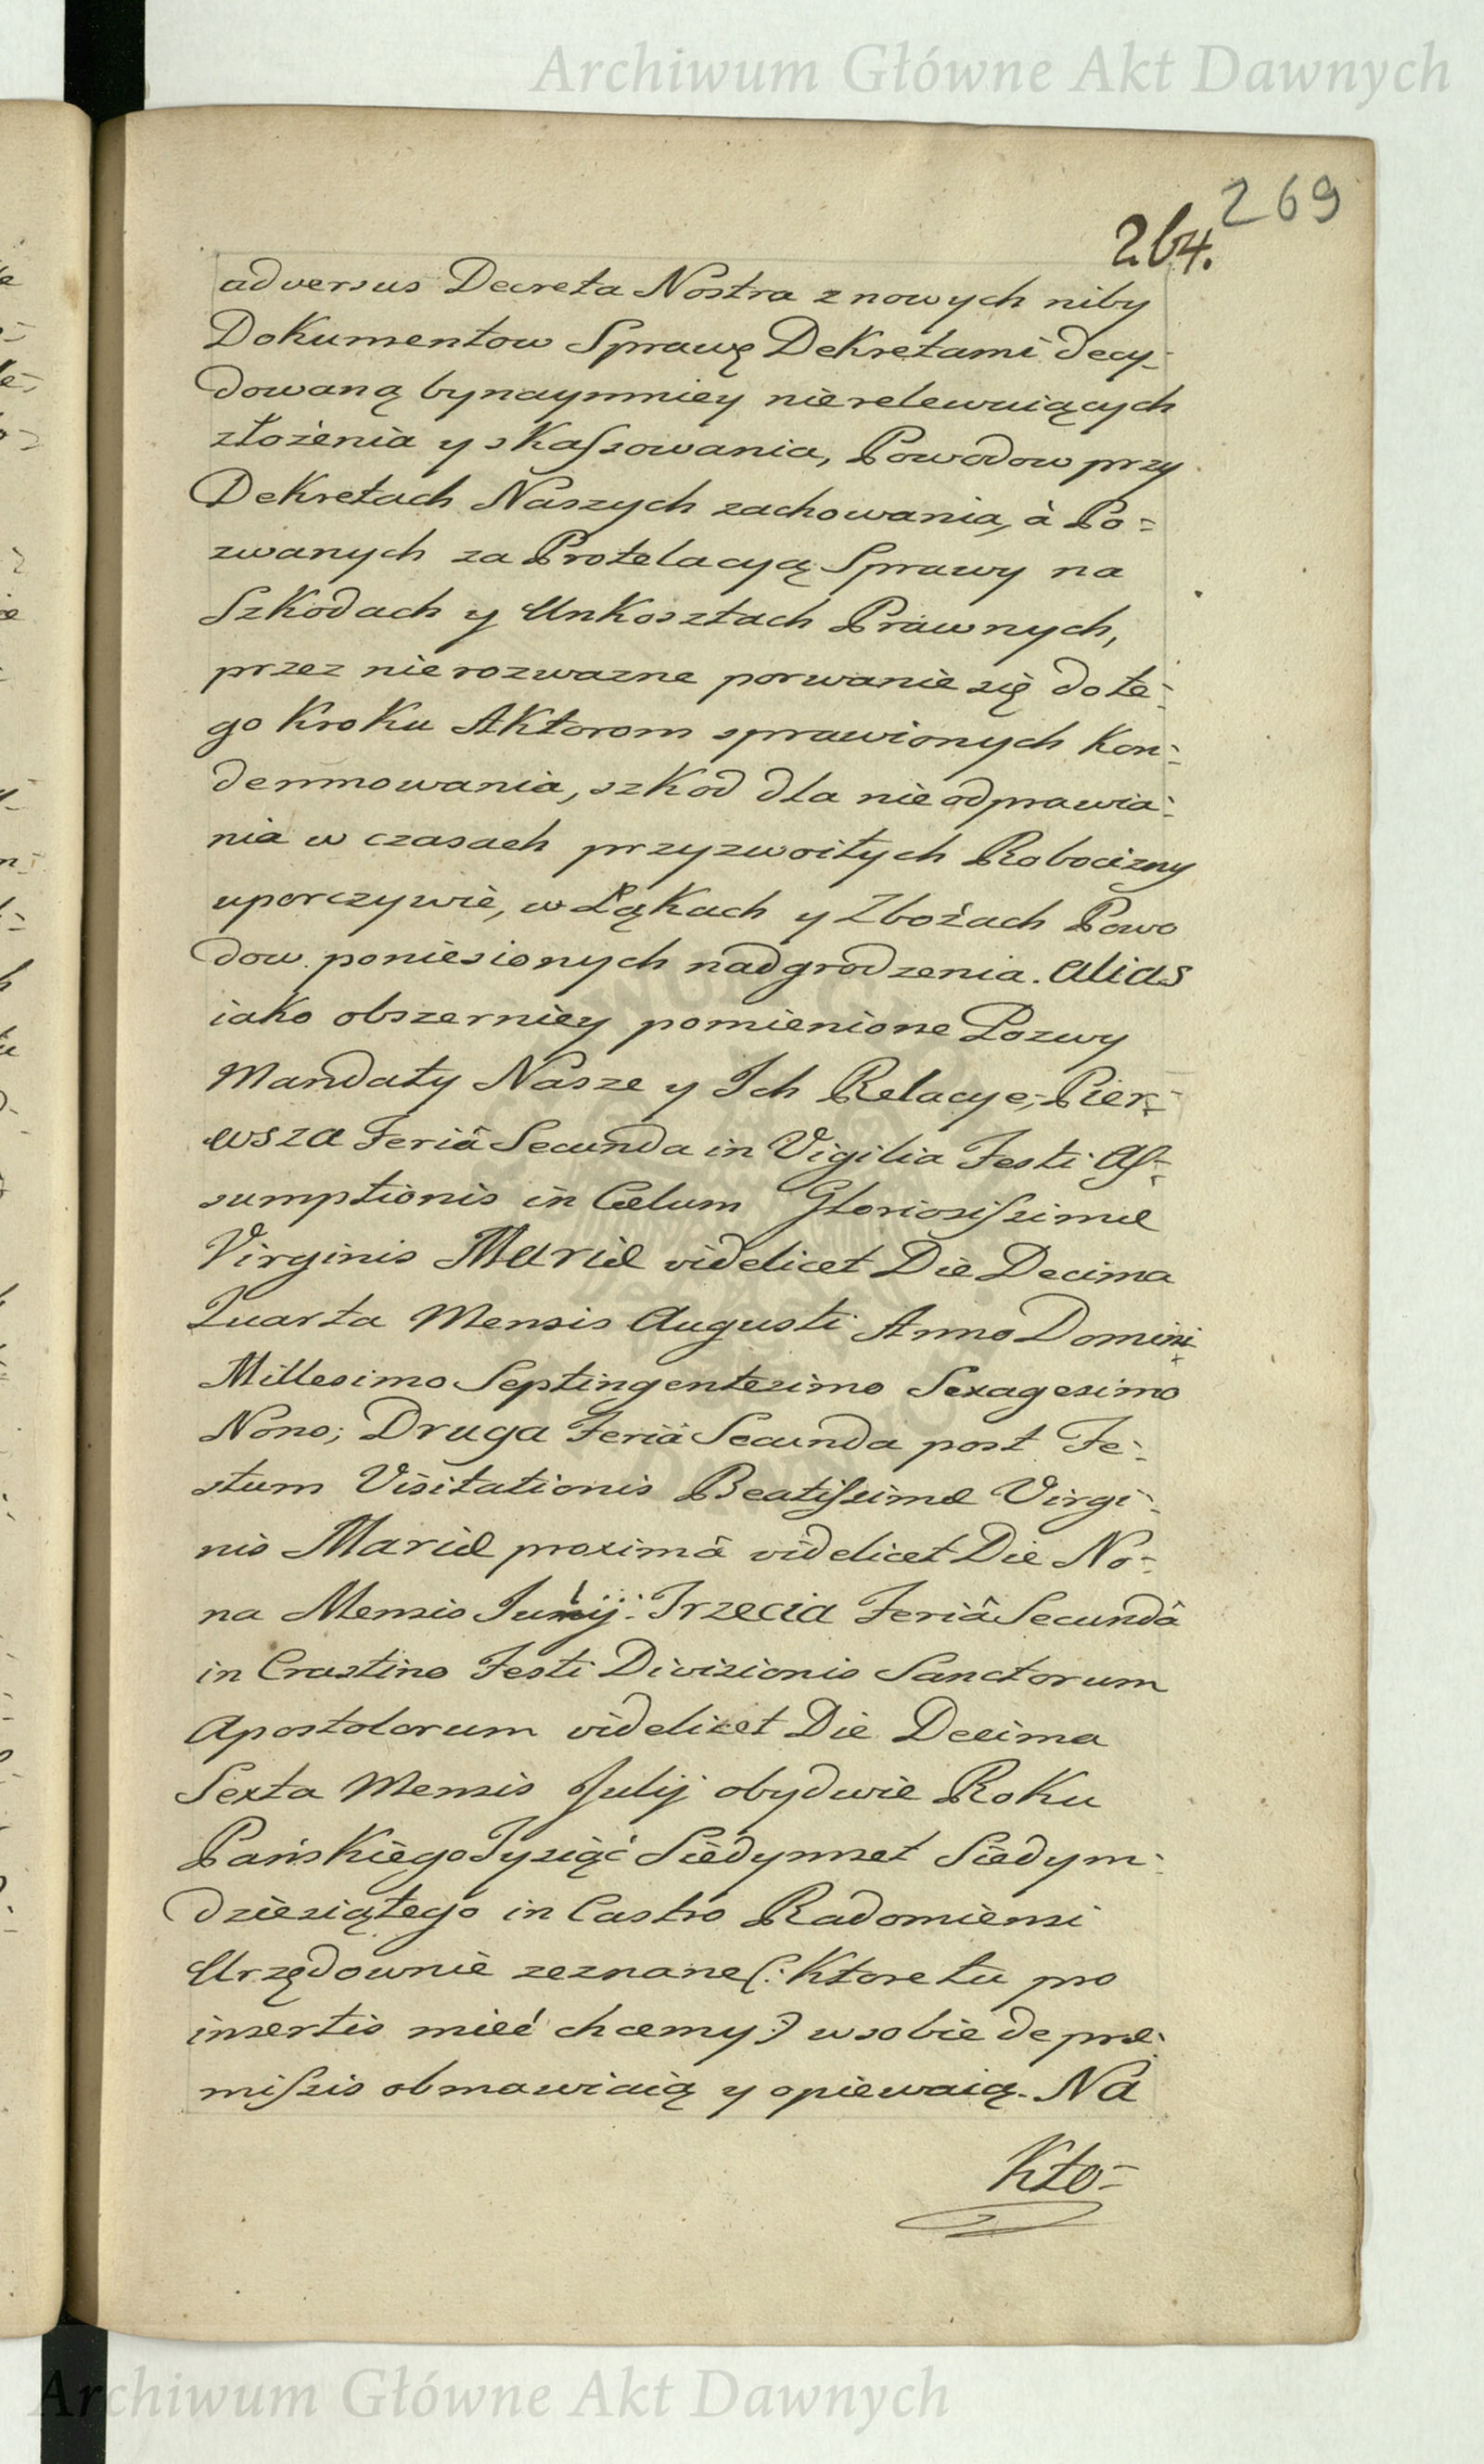 Archiwum Główne Akt Dawnych
269
264.
adversus Decreta Nostra z nowych niby
Dokumentow Sprawę Dekretami decy-
dowaną bynaymniey nierelewuiących
złożenia y skaſsowania, Powodow przy
Dekretach Naszych zachowania, à Po=
zwanych za Protelacyą Sprawy na
Szkodach y Unkosztach Prawnych,
przez nie rozwazne porwanie się do te-
go Kroku Aktorom sprawionych Kon-
demnowania, szkod dla nie odprawia-
nia w czasach przyzwoitych Robocizny
uporczywie, w Łąkach y Zbożach Powo
dow poniesionych nadgrodzenia. alias
iako obszerniey pomienione Pozwy
Mandaty Nasze y Ich Relacye, Pier-
wsza Feriâ Secunda in Vigilia Festi Aſ-
sumptionis in Cœlum Glorioſiſsimæ
Virginis Mariæ videlicet Die Decima
Quarta Mensis Augusti Anno Domini
Millesimo Septingentesimo Sexagesimo
Nono; Druga Feriâ Secunda post Fe-
stum Visitationis Beatiſsimæ Virgi-
nis Mariæ proximâ videlicet Die No-
na Mensis Julij. Trzecia Feriâ Secundâ
in Crastino Festi Divisionis Sanctorum
Apostolorum videlicet Die Decima
Sexta Mensis Julij obydwie Roku
Pańskiego Tysiąć Siedymset Siedym-
dziesiątego in Castro Radomiensi
Urzędownie zeznane (: Ktore tu pro
insertis mieć chcemy :) w sobie de præ-
miſsis obmawiaią y opiewaią. Na
Kto-
Archiwum Główne Akt Dawnych